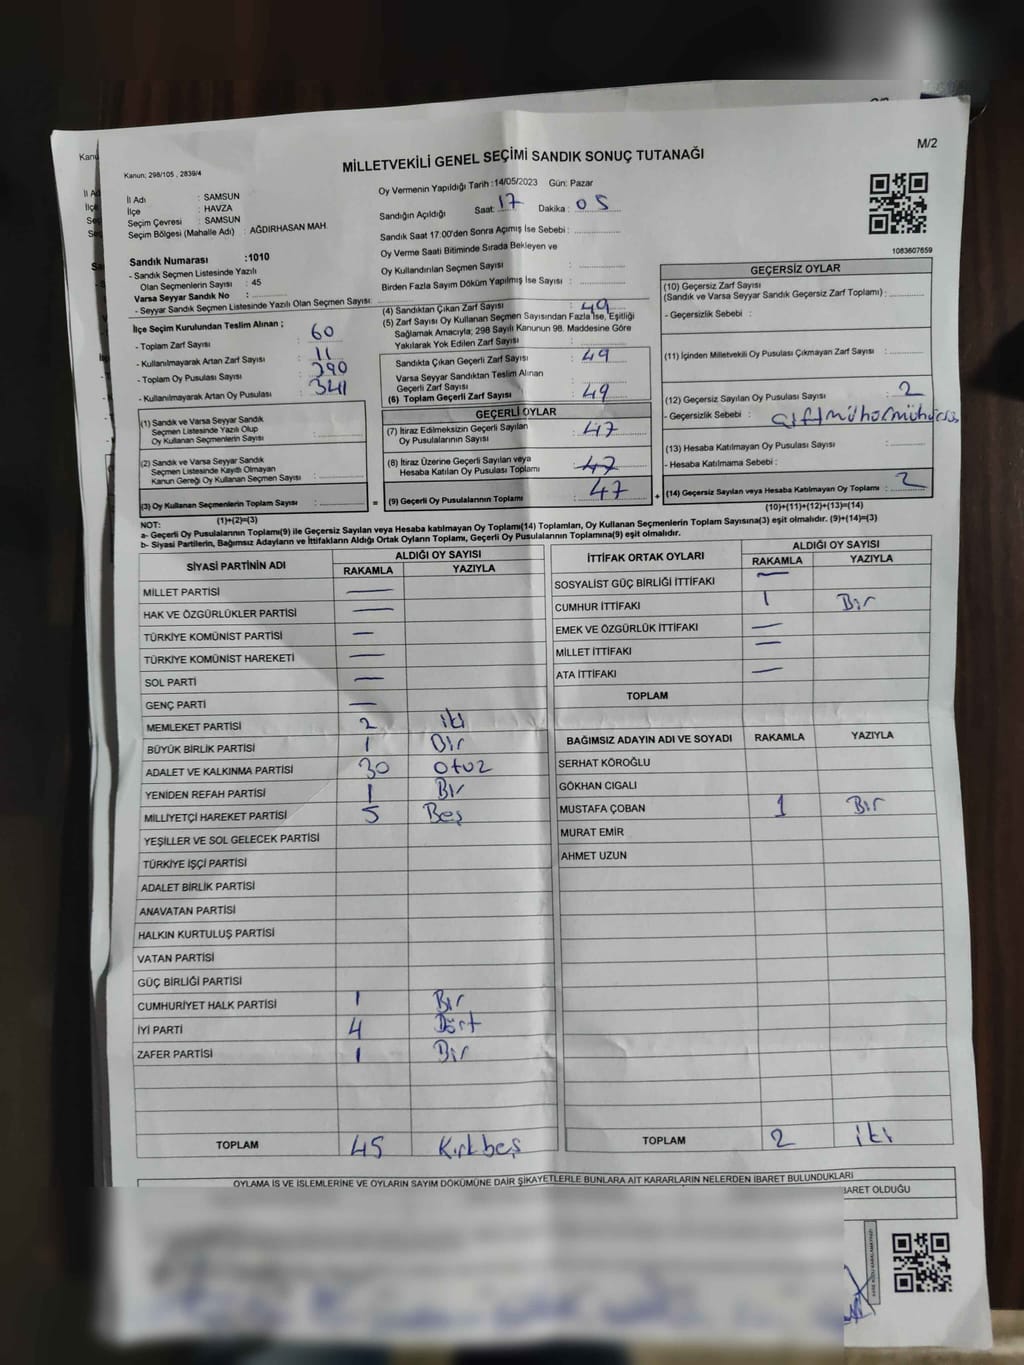 M/2
Kanun; 298/105 , 2839/4
MİLLETVEKİLİ GENEL SEÇİMİ SANDIK SONUÇ TUTANAĞI
İl Adı : SAMSUN
İlçe : HAVZA
Seçim Çevresi : SAMSUN
Seçim Bölgesi (Mahalle Adı) : AĞDIRHASAN MAH.
Oy Vermenin Yapıldığı Tarih :14/05/2023 Gün: Pazar
Sandığın Açıldığı Saat: 17 Dakika : 05
Sandık Saat 17:00'den Sonra Açımış İse Sebebi :
Oy Verme Saati Bitiminde Sırada Bekleyen ve
Oy Kullandırılan Seçmen Sayısı :
Birden Fazla Sayım Döküm Yapılmış İse Sayısı :
1083607659
Sandık Numarası :1010
- Sandık Seçmen Listesinde Yazılı
Olan Seçmenlerin Sayısı : 45
Varsa Seyyar Sandık No :
- Seyyar Sandık Listesinde Yazılı Olan Seçmen Sayısı:
İlçe Seçim Kurulundan Teslim Alınan ;
- Toplam Zarf Sayısı : 60
- Kullanılmayarak Artan Zarf Sayısı : 11
- Toplam Oy Pusulası Sayısı : 390
- Kullanılmayarak Artan Oy Pusulası : 341
(1) Sandık ve Varsa Seyyar Sandık
Seçmen Listesinde Yazılı Olup
Oy Kullanan Seçmenlerin Sayısı :
(2) Sandık ve Varsa Seyyar Sandık
Seçmen Listesinde Kayıtlı Olmayan
Kanun Gereği Oy Kullanan Seçmen Sayısı :
(3) Oy Kullanan Seçmenlerin Toplam Sayısı :
(1)+(2)=(3)
=
(4) Sandıktan Çıkan Zarf Sayısı : 49
(5) Zarf Sayısı Oy Kullanan Seçmen Sayısından Fazla İse, Eşitliği
Sağlamak Amacıyla; 298 Sayılı Kanunun 98. Maddesine Göre
Yakılarak Yok Edilen Zarf Sayısı :
Sandıkta Çıkan Geçerli Zarf Sayısı : 49
Varsa Seyyar Sandıktan Teslim Alınan
Geçerli Zarf Sayısı :
(6) Toplam Geçerli Zarf Sayısı : 49
GEÇERLİ OYLAR
(7) İtiraz Edilmeksizin Geçerli Sayılan
Oy Pusulalarının Sayısı : 47
(8) İtiraz Üzerine Geçerli Sayılan veya
Hesaba Katılan Oy Pusulası Toplamı : 47
(9) Geçerli Oy Pusulalarının Toplamı : 47
+
GEÇERSİZ OYLAR
(10) Geçersiz Zarf Sayısı
(Sandık ve Varsa Seyyar Sandık Geçersiz Zarf Toplamı) :
- Geçersizlik Sebebi :
(11) İçinden Milletvekili Oy Pusulası Çıkmayan Zarf Sayısı :
(12) Geçersiz Sayılan Oy Pusulası Sayısı : 2
- Geçersizlik Sebebi :
(13) Hesaba Katılmayan Oy Pusulası Sayısı :
- Hesaba Katılmama Sebebi :
(14) Geçersiz Sayılan veya Hesaba Katılmayan Oy Toplamı : 2
(10)+(11)+(12)+(13)=(14)
NOT:
a- Geçerli Oy Pusulalarının Toplamı(9) ile Geçersiz Sayılan veya Hesaba katılmayan Oy Toplamı(14) Toplamları, Oy Kullanan Seçmenlerin Toplam Sayısına(3) eşit olmalıdır. (9)+(14)=(3)
b- Siyasi Partilerin, Bağımsız Adayların ve İttifakların Aldığı Ortak Oyların Toplamı, Geçerli Oy Pusulalarının Toplamına(9) eşit olmalıdır.
SİYASİ PARTİNİN ADI ALDIĞI OY SAYISI
RAKAMLA YAZIYLA
MİLLET PARTİSİ —
HAK VE ÖZGÜRLÜKLER PARTİSİ —
TÜRKİYE KOMÜNİST PARTİSİ —
TÜRKİYE KOMÜNİST HAREKETİ —
SOL PARTİ —
GENÇ PARTİ —
MEMLEKET PARTİSİ 2 iki
BÜYÜK BİRLİK PARTİSİ 1 Bir
ADALET VE KALKINMA PARTİSİ 30 otuz
YENİDEN REFAH PARTİSİ 1 Bir
MİLLİYETÇİ HAREKET PARTİSİ 5 Beş
YEŞİLLER VE SOL GELECEK PARTİSİ
TÜRKİYE İŞÇİ PARTİSİ
ADALET BİRLİK PARTİSİ
ANAVATAN PARTİSİ
HALKIN KURTULUŞ PARTİSİ
VATAN PARTİSİ
GÜÇ BİRLİĞİ PARTİSİ
CUMHURİYET HALK PARTİSİ 1 Bir
İYİ PARTİ 4 Dört
ZAFER PARTİSİ 1 Bir
TOPLAM 45 Kırkbeş
İTTİFAK ORTAK OYLARI ALDIĞI OY SAYISI
RAKAMLA YAZIYLA
SOSYALİST GÜÇ BİRLİĞİ İTTİFAKI —
CUMHUR İTTİFAKI 1 Bir
EMEK VE ÖZGÜRLÜK İTTİFAKI —
MİLLET İTTİFAKI —
ATA İTTİFAKI —
TOPLAM
BAĞIMSIZ ADAYIN ADI VE SOYADI RAKAMLA YAZIYLA
SERHAT KÖROĞLU
GÖKHAN CIGALI
MUSTAFA ÇOBAN 1 Bir
MURAT EMİR
AHMET UZUN
TOPLAM 2 iki
OYLAMA İŞ VE İŞLEMLERİNE VE OYLARIN SAYIM DÖKÜMÜNE DAİR ŞİKAYETLERLE BUNLARA AİT KARARLARIN NELERDEN İBARET BULUNDUKLARI
BARET OLDUĞU